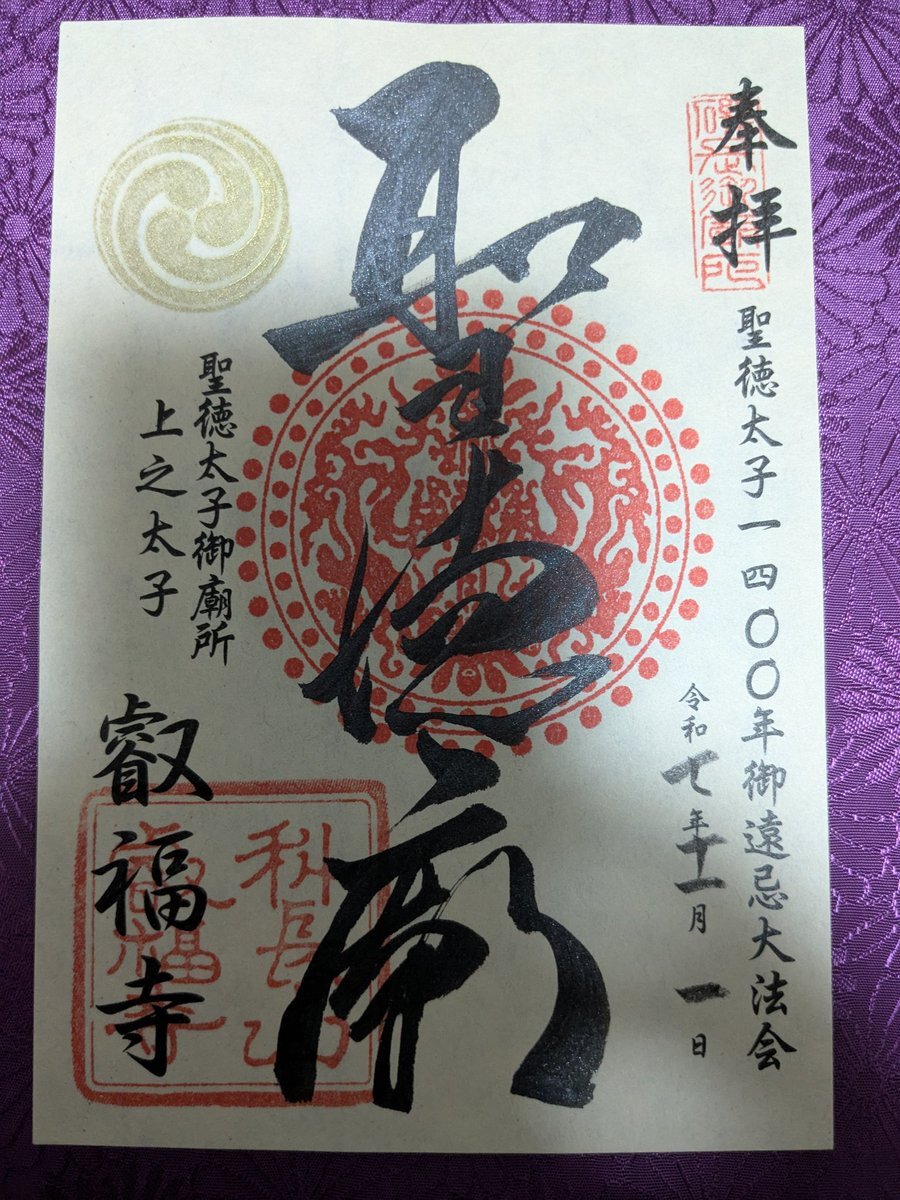 奉拝
聖徳太子一四〇〇年御遠忌大法会
令和七年十一月一日
聖徳廟
聖徳太子御廟所
上之太子
叡福寺
科長山
叡福寺